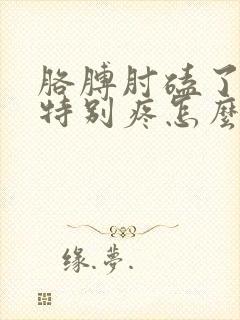 胳膊肘磕了
特别疼怎麽
缘.梦.